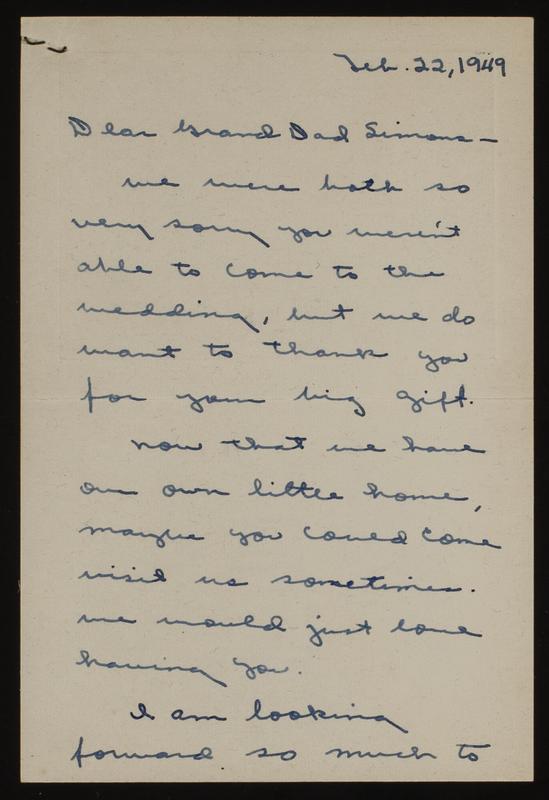 Feb. 22, 1949
Dear Grand Dad Simons —
we were both so
very sorry you weren't
able to come to the
wedding, but we do
want to thank you
for your big gift.
now that we have
our own little home,
maybe you could come
visit us sometimes.
we would just love
having you.
I am looking
forward so much to